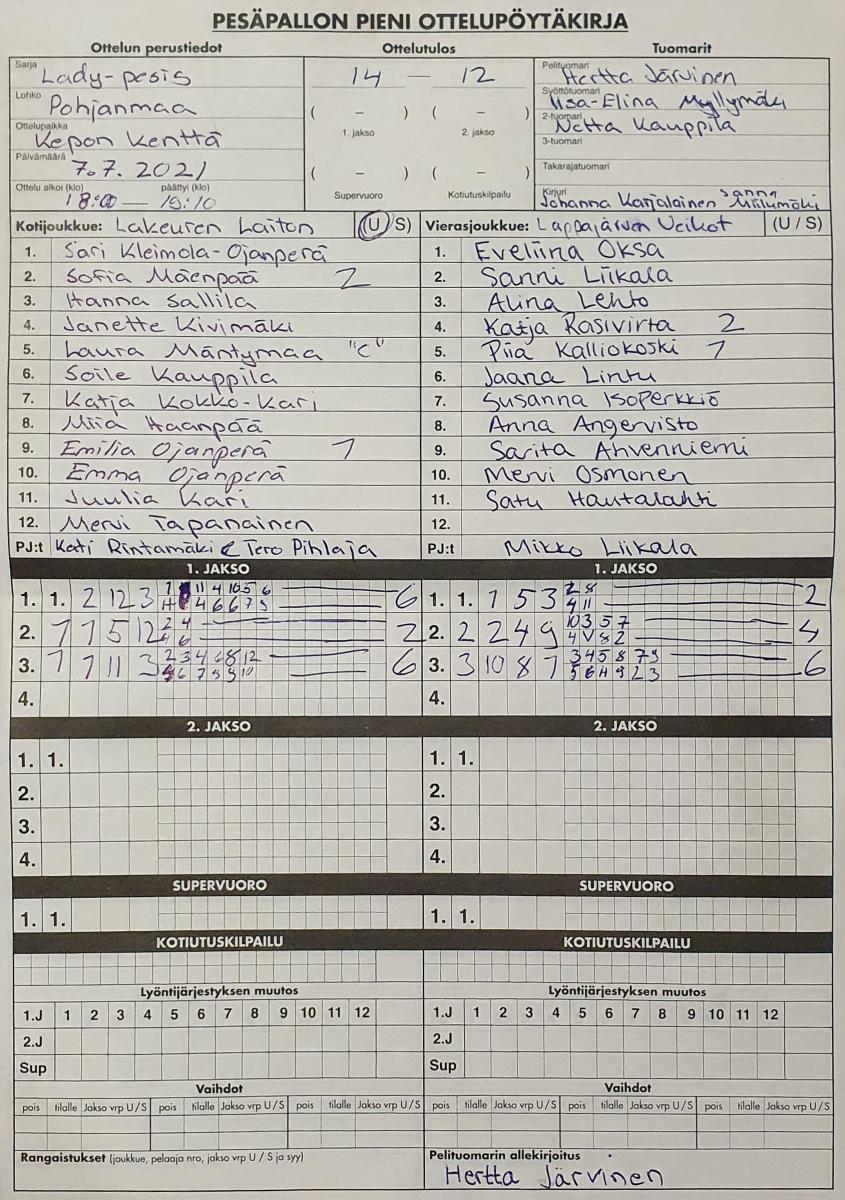 PESÄPALLON PIENI OTTELUPÖYTÄKIRJA
Ottelun perustiedot Ottelutulos Tuomarit
Sarja Lady-pesis
Lohko Pohjanmaa
Ottelupaikka Kepon Kenttä
Päivämäärä 7.7.2021
Ottelu alkoi (klo) päättyi (klo)
18:00 — 19:10
14 — 12
( – ) ( – )
1. jakso 2. jakso
( – ) ( – )
Supervuoro Kotiutuskilpailu
Pelituomari Hertta Järvinen
Syöttötuomari Iisa-Elina Myllymäki
2-tuomari Netta Kauppila
3-tuomari
Takarajatuomari
Kirjuri Johanna Karjalainen Sanna
Kotijoukkue: Lakeuren Laiton (U/S)
1. Sari Kleimola-Ojanperä
2. Sofia Mäenpää 2
3. Hanna Sallila
4. Janette Kivimäki
5. Laura Mäntymaa "C"
6. Soile Kauppila
7. Katja Kokko-Kari
8. Miia Haanpää
9. Emilia Ojanperä 1
10. Emma Ojanperä
11. Juulia Kari
12. Mervi Tapanainen
PJ:t Kati Rintamäki & Tero Pihlaja
Vierasjoukkue: Lappajärven Veikot (U/S)
1. Eveliina Oksa
2. Sanni Liikala
3. Alina Lehto
4. Katja Rasivirta 2
5. Piia Kalliokoski 1
6. Jaana Lintu
7. Susanna Isoperkkiö
8. Anna Angervisto
9. Sarita Ahvenniemi
10. Mervi Osmonen
11. Satu Hautalahti
12.
PJ:t Mikko Liikala
1. JAKSO
1. 1. 2 12 3 11 4 10 5 6 6
4 6 6 7 9
2. 1 1 5 12 2 4 2
4 6
3. 1 1 11 3 2 3 4 6 8 12 6
6 7 9 9 10
4.
1. JAKSO
1. 1. 1 5 3 2 8 2
4 11
2. 2 2 4 9 10 3 5 7 4
4 V 8 2
3. 3 10 8 1 3 4 5 8 7 9 6
5 6 H 9 2 3
4.
2. JAKSO 2. JAKSO
1. 1. 1. 1.
2. 2.
3. 3.
4. 4.
SUPERVUORO SUPERVUORO
1. 1. 1. 1.
KOTIUTUSKILPAILU KOTIUTUSKILPAILU
Lyöntijärjestyksen muutos Lyöntijärjestyksen muutos
1.J 1 2 3 4 5 6 7 8 9 10 11 12 1.J 1 2 3 4 5 6 7 8 9 10 11 12
2.J 2.J
Sup Sup
Vaihdot Vaihdot
pois tilalle Jakso vrp U/S pois tilalle Jakso vrp U/S pois tilalle Jakso vrp U/S pois tilalle Jakso vrp U/S pois tilalle Jakso vrp U/S pois tilalle Jakso vrp U/S
Rangaistukset (joukkue, pelaaja nro, jakso vrp U / S ja syy)
Pelituomarin allekirjoitus
Hertta Järvinen